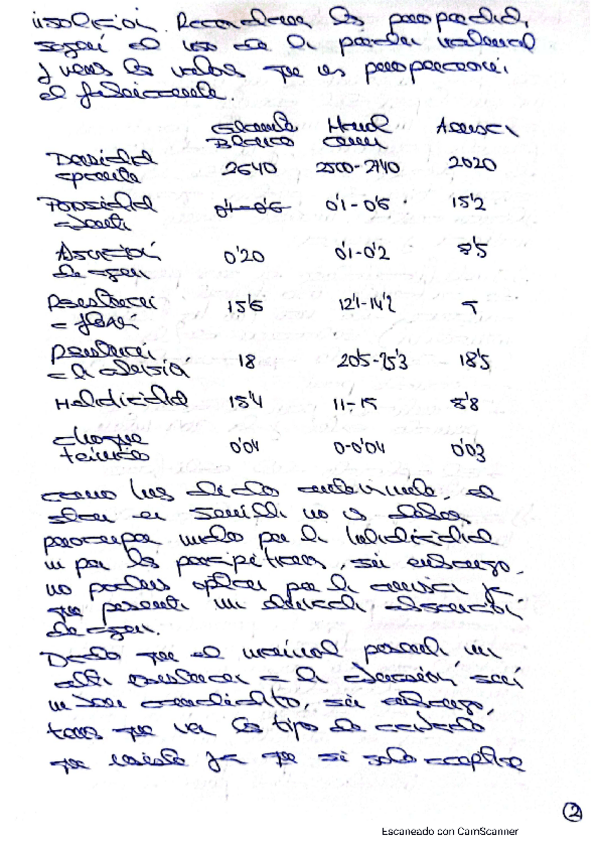 solución. Recordemos las propiedades,
según el uso de la piedra natural
y vemos los valores que nos proporciona
el fabricante.
Granito Blanco Marmol Arenisca
Densidad aparente 2640 2500-2740 2020
Porosidad abierta 0'4-0'6 0'1-0'6 15'2
Absorción de agua 0'20 0'1-0'2 8'5
Resistencia a flexión 15'6 12'1-14'2
Resistencia a la abrasión 18 20'5-25'3 18'5
Heladicidad 15'4 11-15 8'8
choque térmico 0'04 0-0'04 0'03
como hemos dicho anteriormente, al
estar en Sevilla no debe
preocupar mucho por la heladicidad
ni por las, sin embargo,
no podemos optar por la arenisca ya
que presenta una elevada absorción
de agua.
Dado que el mármol presenta una
alta resistencia a la abrasión, sería
un buen candidato, sin embargo,
que ver los tipos de acabado
que ya que si solo
2
Escaneado con CamScanner